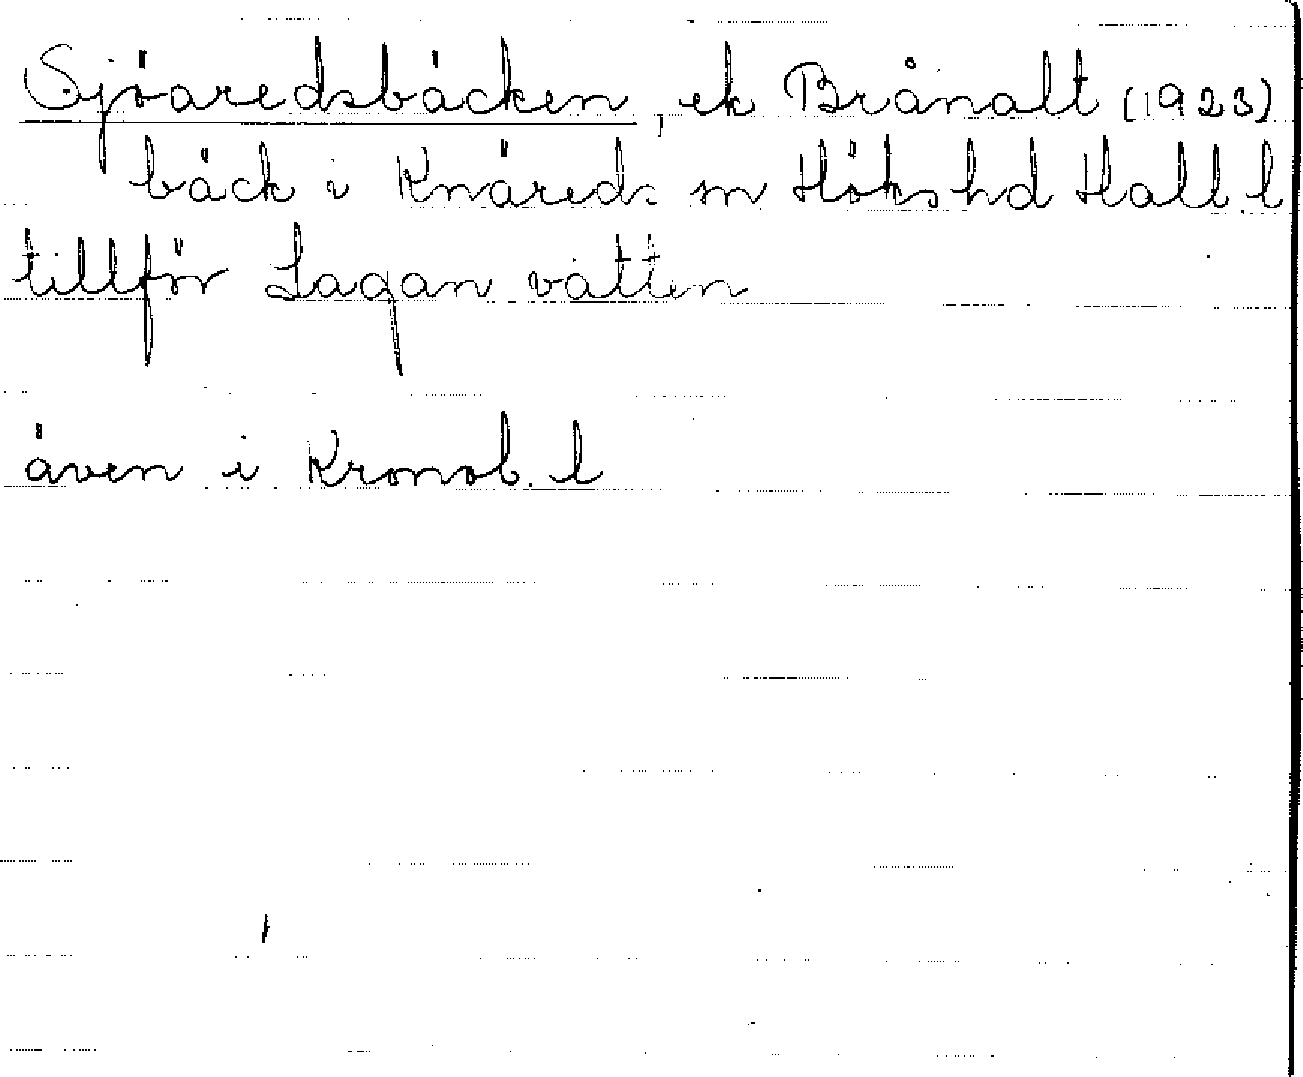 Sjöaredsbäcken, ek Brånalt (1923)
bäck i Knäreds sn Höks hd Hall. l
tillför Lagan vatten
även i Kronob. l